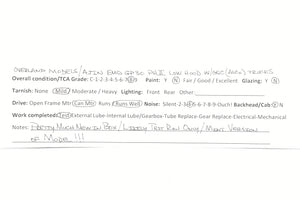 OVERLAND MODELS/AJIN EMD GP30 PH II LOW HOOD W/DCC (ALCO) TRUCKS
Overall condition/TCA Grade: C-1-2-3-4-5-6-7-8-9 Paint: Y N Fair / Good / Excellent Glazing: Y N
Tarnish: None Mild / Moderate / Heavy Lighting: Front Rear Other:
Drive: Open Frame Mtr Can Mtr Runs Runs Well Noise: Silent-2-3-4-5-6-7-8-9-Ouch! Backhead/Cab: Y N
Work completed: Test External Lube-Internal Lube/Gearbox-Tube Replace-Gear Replace-Electrical-Mechanical
Notes: PRETTY MUCH NEW IN BOX / LIKELY TEST RUN ONLY / MINT VERSION
OF MODEL !!!